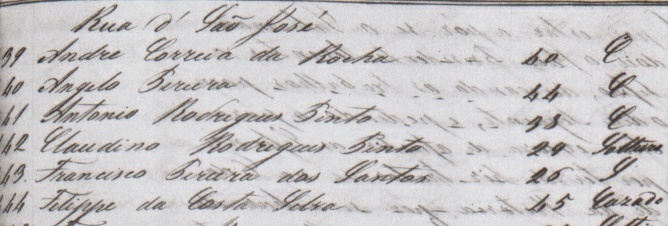 Rua d' São José
39 Andre Correia da Rocha 40 C
40 Angelo Pereira 44 C
41 Antonio Rodrigues Pinto 38 C
42 Claudino Rodrigues Pinto 29 Soltro
43. Francisco Pereira dos Santos 26 S
44 Filippe da Costa 45 Cazado